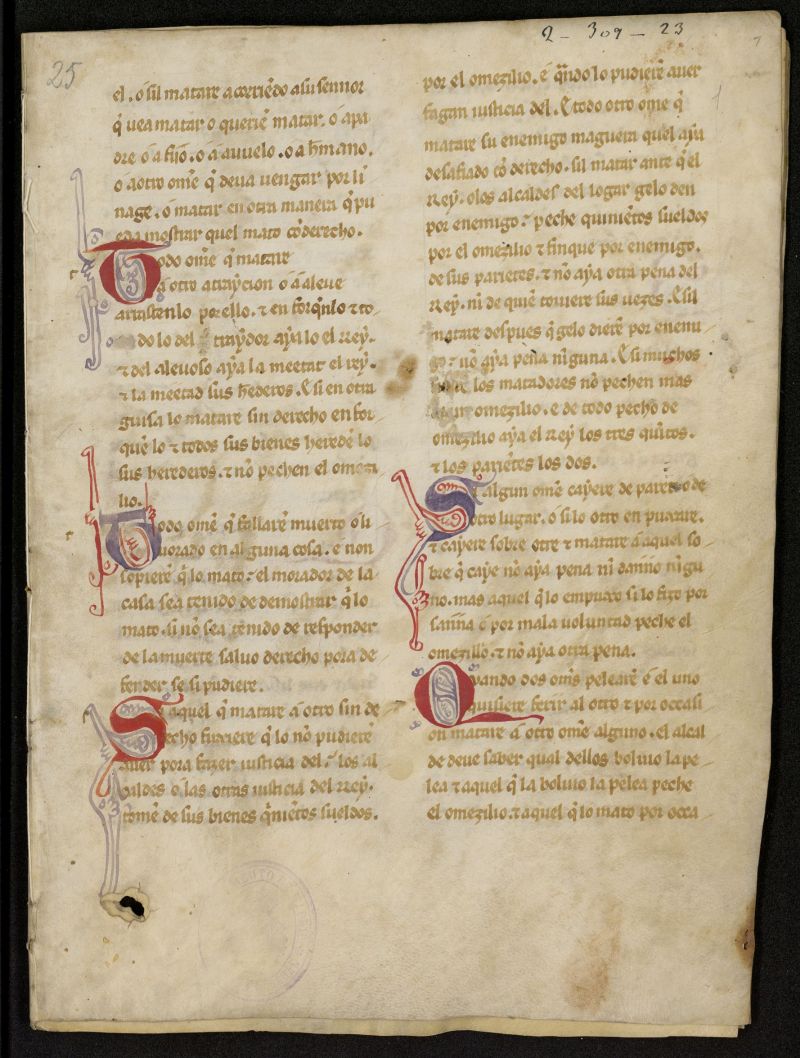 2 - 309 - 23
25
el. o sil matare acorriẽdo a su sennor
q̃ vea matar o querẽ matar. o a pa
dre o a fijo. o a auuelo. o a hr̃mano.
o a otro om̃e q̃ deua uengar por li
nage. o matar en otra manera q̃ pu
eda mostrar quel mato cõ derecho.
Todo om̃e q̃ matare
a otro a trayçion o a aleue
arrastenlo por ello. ⁊ en forq̃nlo ⁊ to
do lo del traydor aya lo el rrey.
⁊ del aleuoso aya la meetat el rrey.
⁊ la meetad sus h̃ederos. E si en otra
guisa lo matare sin derecho en for
quẽ lo ⁊ todos sus bienes heredẽ lo
sus herederos. ⁊ nõ pechen el omezi
lio.
Todo om̃e q̃ fallarẽ muerto o li
uorado en alguna cosa. e non
sopierẽ q̃ lo mato: el morador de la
casa sea tenido de demostrar q̃ lo
mato. si nõ sea tenido de responder
de la muerte saluo derecho pora de
fender se si pudiere.
Si aquel q̃ matare a otro sin de
recho fuxiere q̃ lo nõ pudierẽ
auer pora fazer iusticia del: los al
caldes o las otras iusticia del rrey.
tomẽ de sus bienes q̃niẽtos sueldos.
por el omezilio. e q̃ndo lo pudierẽ auer
fagan iusticia del. E todo otro ome q̃
matare su enemigo maguera quel aya
desafiado cõ derecho. sil matar ante q̃ el
rrey. o los alcaldes del logar gelo den
por enemigo: peche quiniẽtos sueldos
por el omezilio ⁊ finque por enemigo.
de sus pariẽtes. ⁊ nõ aya otra pena del
rrey. nĩ de quiẽ touiere sus uezes. E sil
matare despues q̃ gelo dierẽ por enemi
go: nõ aya pena nĩguna. E si muchos
los matadores nõ pechen mas
un omezilio. e de todo pecho de
omezilio aya el rrey los tres quĩtos.
⁊ los pariẽtes los dos.
Si algun om̃e cayere de pared o de
otro lugar. o si lo otro en puxare.
⁊ cayere sobre otre ⁊ matare a aquel so
bre q̃ caye nõ aya pena nĩ danño nĩgu
no. mas aquel q̃ lo empuxo si lo fizo por
sanña o por mala uoluntad peche el
omezillo. ⁊ nõ aya otra pena.
Quando dos om̃s pelearẽ e el uno
quisiere ferir al otro ⁊ por occasi
on matare a otro om̃e alguno. el alcal
de deue saber qual dellos boluio la pe
lea ⁊ aquel q̃ la boluio la pelea peche
el omezilio. ⁊ aquel q̃ lo mato por occa